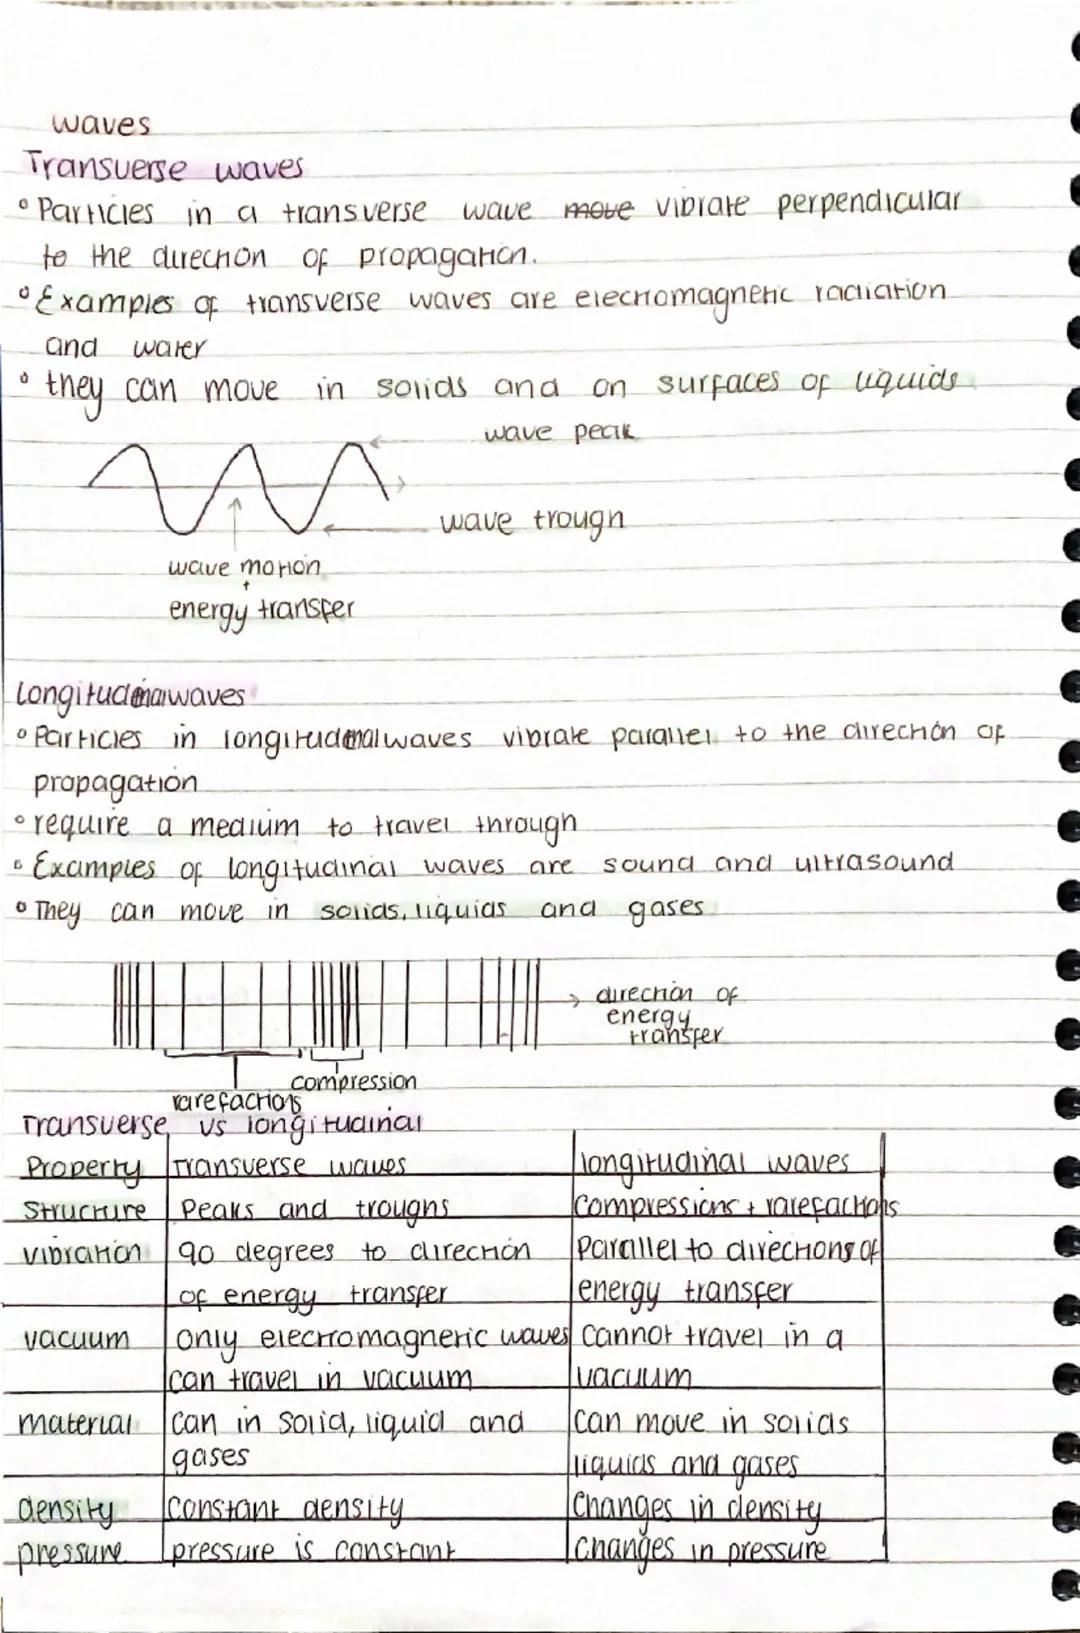 waves
Transverse waves
° Particles in a transverse wave move vibrate perpendicular
to the direction of propagation.
° Examples of transverse waves are electromagnetic radiation
and water
° they can move in solids and on surfaces of liquids
wave peak
wave trough
wave motion
+
energy transfer
Longitudinal waves
° Particles in longitudinal waves vibrate parallel to the direction of
propagation
° require a medium to travel through
° Examples of longitudinal waves are sound and ultrasound
° They can move in solids, liquids and gases
→ direction of
energy
transfer
compression
rarefactions
Transverse vs longitudinal
Property Transverse waves longitudinal waves
Structure Peaks and troughs Compressions + rarefactions
vibration 90 degrees to direction Parallel to directions of
of energy transfer energy transfer
vacuum only electromagnetic waves cannot travel in a
can travel in vacuum vacuum
material can in solid, liquid and can move in solids
gases liquids and gases
density constant density Changes in density
pressure pressure is constant changes in pressure